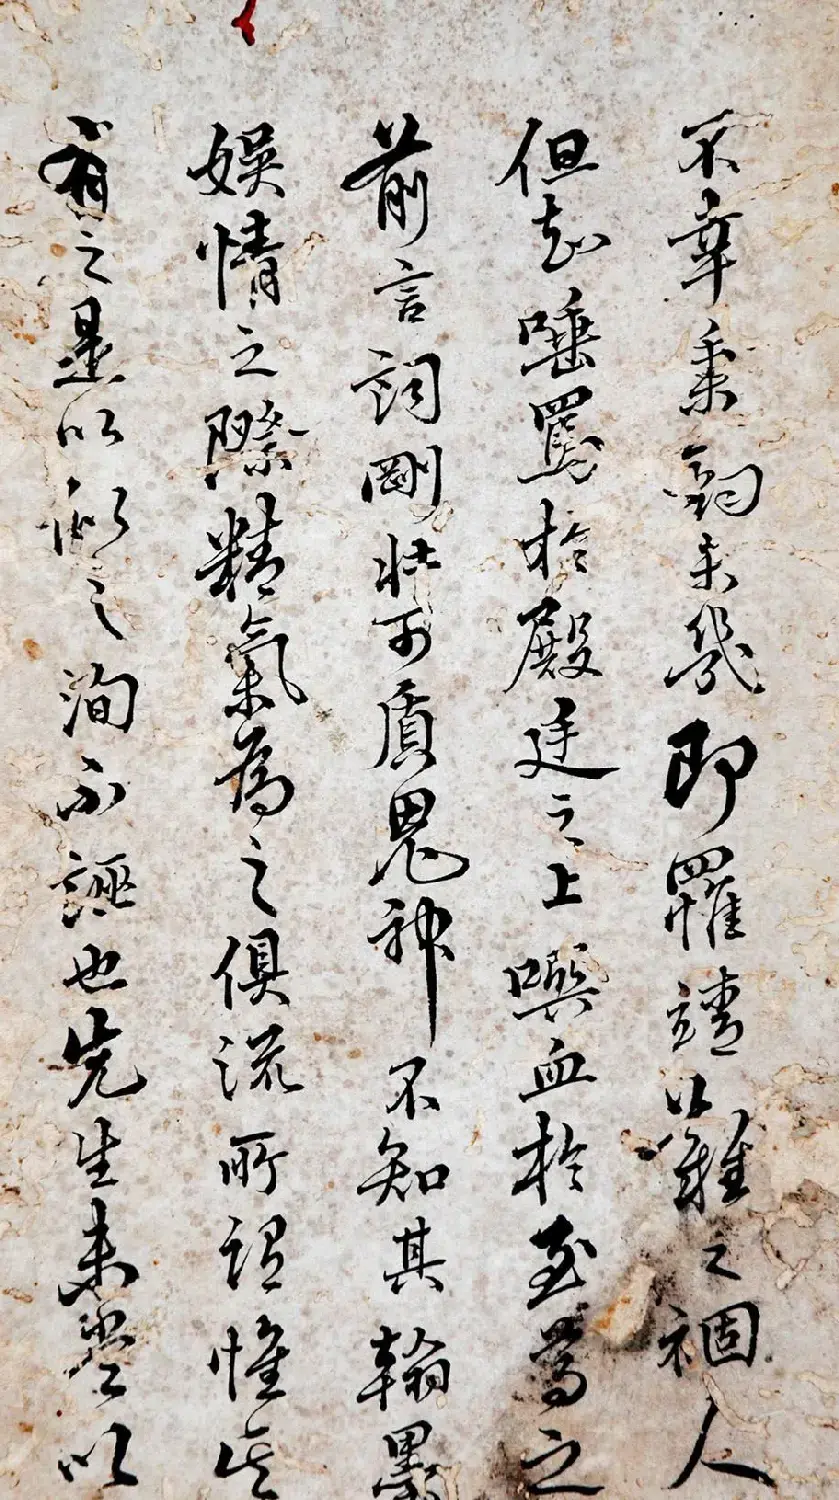 不幸秉鈞未幾即罹靖難之禍人
但知唾罵於殿廷之上噀血於至尊之
前言詞剛壯可質鬼神不知其翰墨
娛情之際精氣為之俱流所謂惟其
有之是以似之洵不誣也先生未嘗以